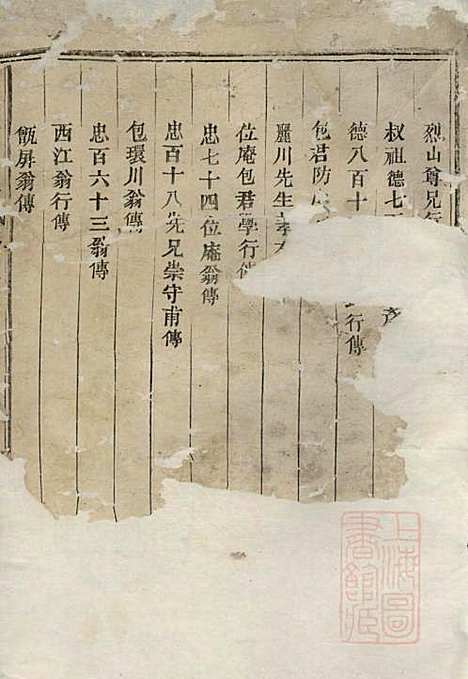 烈山尊兄行
叔祖德七
德八百十 行傳
包君防
麗川先生
位庵包君學行傳
忠七十四位庵翁傳
忠百十八先兄崇守甫傳
包環川翁傳
忠百六十三翁傳
西江翁行傳
甑屏翁傳
上海圖書館藏